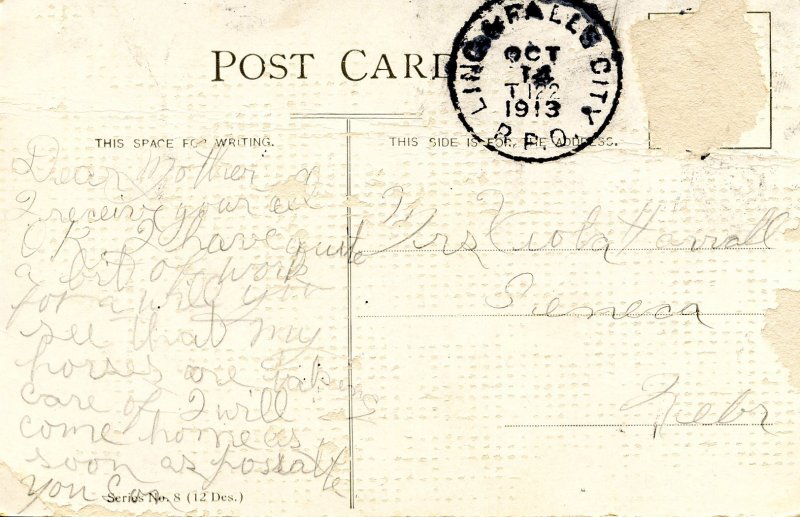 POST CARD
LING & FALLS CITY
OCT
14
T 122
1913
R.P.O.
THIS SPACE FOR WRITING.
THIS SIDE IS FOR THE ADDRESS.
Dear Mother
I receive your
O K. I have quite
a bit of work
for a while you
see that my
horses are taking
care of I will
come home as
soon as possable
you can
Mrs Viola Harrall
Seneca
Nebr
Series No. 8 (12 Des.)